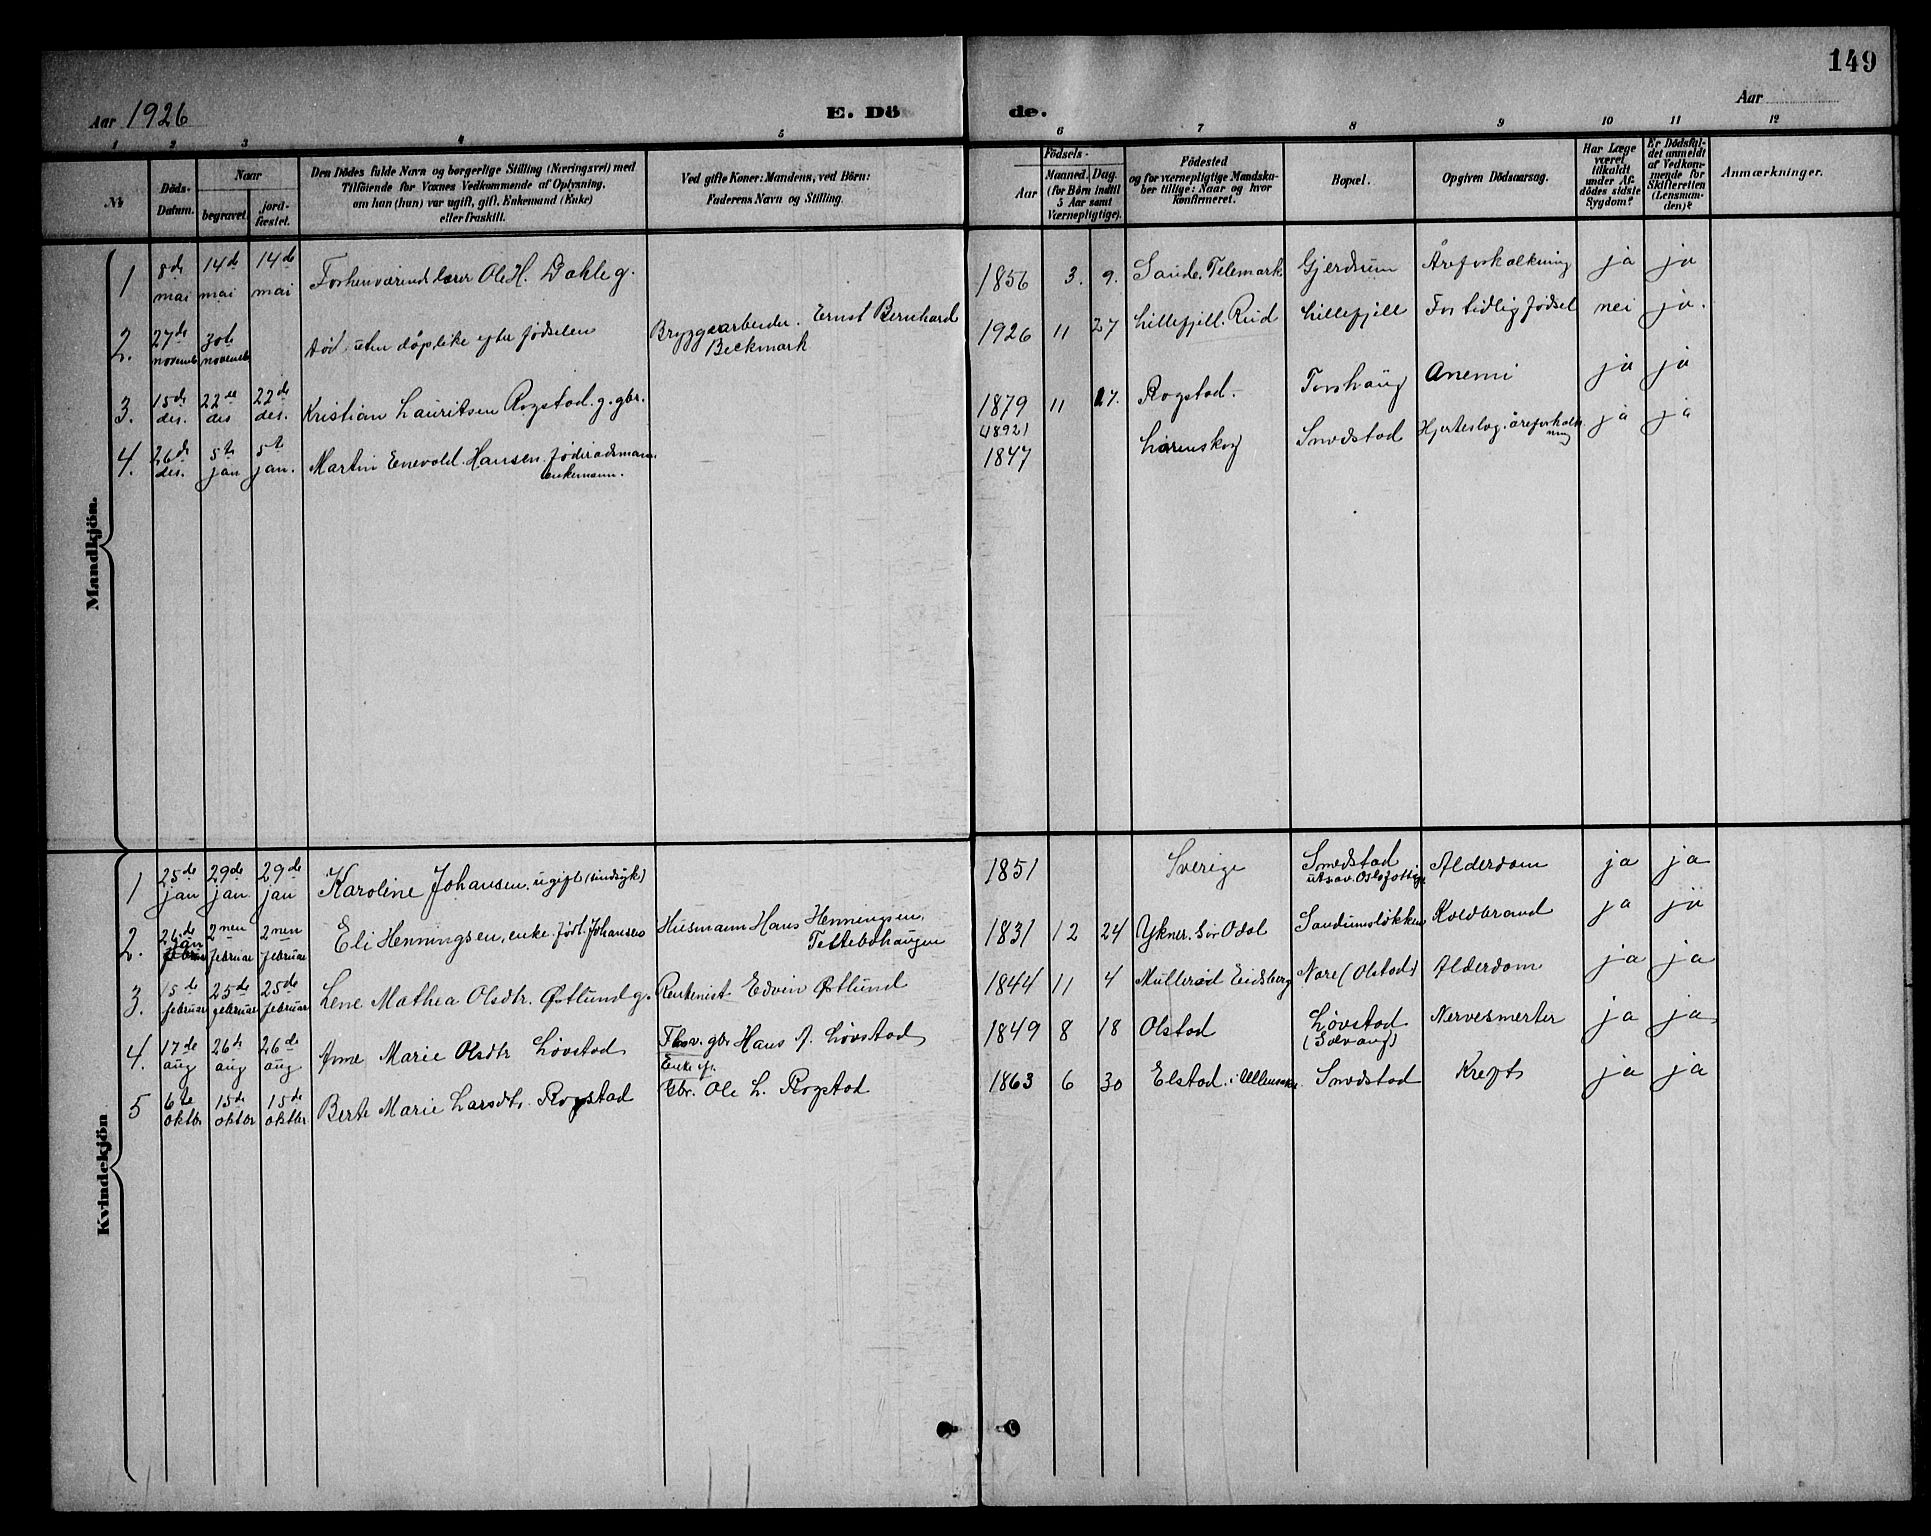 149
Aar 1926
E. Dö
de.
Aar
1 2 3 4 5 6 7 8 9 10 11 12
№
Döds-
Datum.
Naar
begravet.
jord-
fæstet.
Den Dödes fulde Navn og borgerlige Stilling (Næringsvei) med
Tilföiende for Voxnes Vedkommende af Oplysning,
om han (hun) var ugift, gift, Enkemand (Enke)
eller fraskilt.
Ved gifte Koner: Mandens, ved Börn:
Faderens Navn og Stilling.
Födsels-
Aar
Maaned. Dag.
(for Börn indtil
5 Aar samt
Værnepligtige).
Födested
og for værnepligtige Mandska-
ber tillige: Naar og hvor
konfirmeret.
Bopæl.
Opgiven Dödsaarsag.
Har Læge
været
tilkaldt
under Af-
dödes sidste
Sygdom?
Er Dödsfal-
det anmeldt
af Vedkom-
mende for
Skifteretten
(Lensman-
den)?
Anmærkninger.
Mandkjön.
1 8de mai 14de mai 14de mai Forhenværende lærer Ole H. Dahle g. 1856 3. 9. Saude. Telemark Gjerdrum Åreforkalkning ja ja
2. 27de novemb 30te novemb død uten dåp like efter fødselen Bryggearbeider. Ernst Bernhard
Beckmark 1926 11 27 Lillefjell. Rud Lillefjell For tidlig fødsel nei ja.
3. 15de des. 22de des 22de des. Kristian Lauritsen Rogstad. g. gbr. 1879 11 17. Rogstad. Torshaug Anemi ja ja
4. 26de des. 5te jan 5te jan. Martin Enevold Hansen. føderådsmann
enkemann. 1847 Lørenskog Smedstad Hjerteslag. åreforkalk-
ning ja ja
Kvindekjön
1 25de jan 29de jan 29de jan Karoline Johansen. ugift (sindsyk) 1851 Sverige Smedstad Alderdom ja ja
2. 26de jan 2nen februar 2nen februar Eli Henningsen, enke født Johansen Husmann Hans Henningsen,
Tettebøhaugen 1831 12 24 Ykner. Sør Odal Sandumsløkken Koldbrand ja ja
3. 15de februar 25de februar 25de februar Lene Mathea Olsdtr. Østlund g. Rentenist Edvin Østlund 1844 11 4 Mullerød Eidsberg Nore (Olstad) Alderdom ja ja
4. 17de aug 26de aug 26de aug Anne Marie Olsdtr Løvstad Fhv. gbr Hans A. Løvstad 1849 8 18 Olstad Løvstad
(Solvang) Nervesmerter ja ja
5 6te oktbr 15de oktbr 15de oktbr Berte Marie Larsdtr. Rogstad Enke eft.
Gbr. Ole L. Rogstad 1863 6 30 Elstad i Ullensaker Smedstad Kreft ja ja